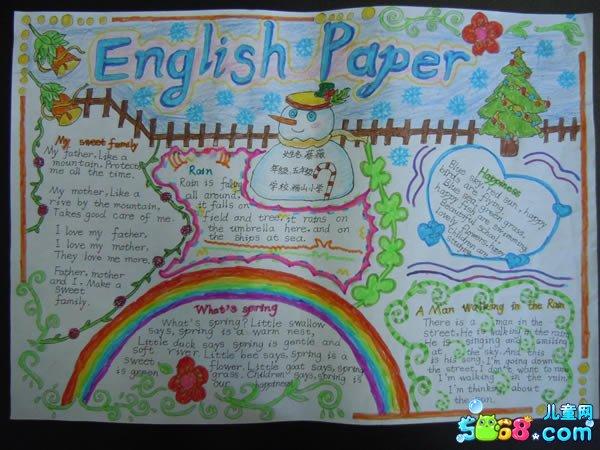 English Paper
My sweet family
My father, like a
mountain. Protects
me all the time.
My mother, Like a
rive by the mountain.
Takes good care of me.
I love my father.
I love my mother.
They love me more.
Father, mother
and I. Make a
sweet
family.
Rain
Rain is falling
all around.
it falls on
field and tree, it rains on
the umbrella here. and on
the ships at sea.
姓名:蔷薇
年级:五年级
学校:福山小学
Happiness
Blue sky, fly sun, happy
birds are flying
Blue sea, green grass,
happy fish are swimming
Beautiful school,
lovely flowers, happy
children are
What's spring
What's spring? Little swallow
says, spring is a warm nest,
Little duck says spring is gentle and
soft river. Little bee says, spring is a
sweet flower. Little goat says, spring
is green grass. Children says, spring is
our happiness!
A Man Walking in the Rain
There is a man in the
street. He is walking in the rain
He is singing and smiling
at the sky. And this
is his song. I'm going down
the street, I don't want to
I'm walking in the rain
I'm thinking about
the sun.
儿童网
5068.com